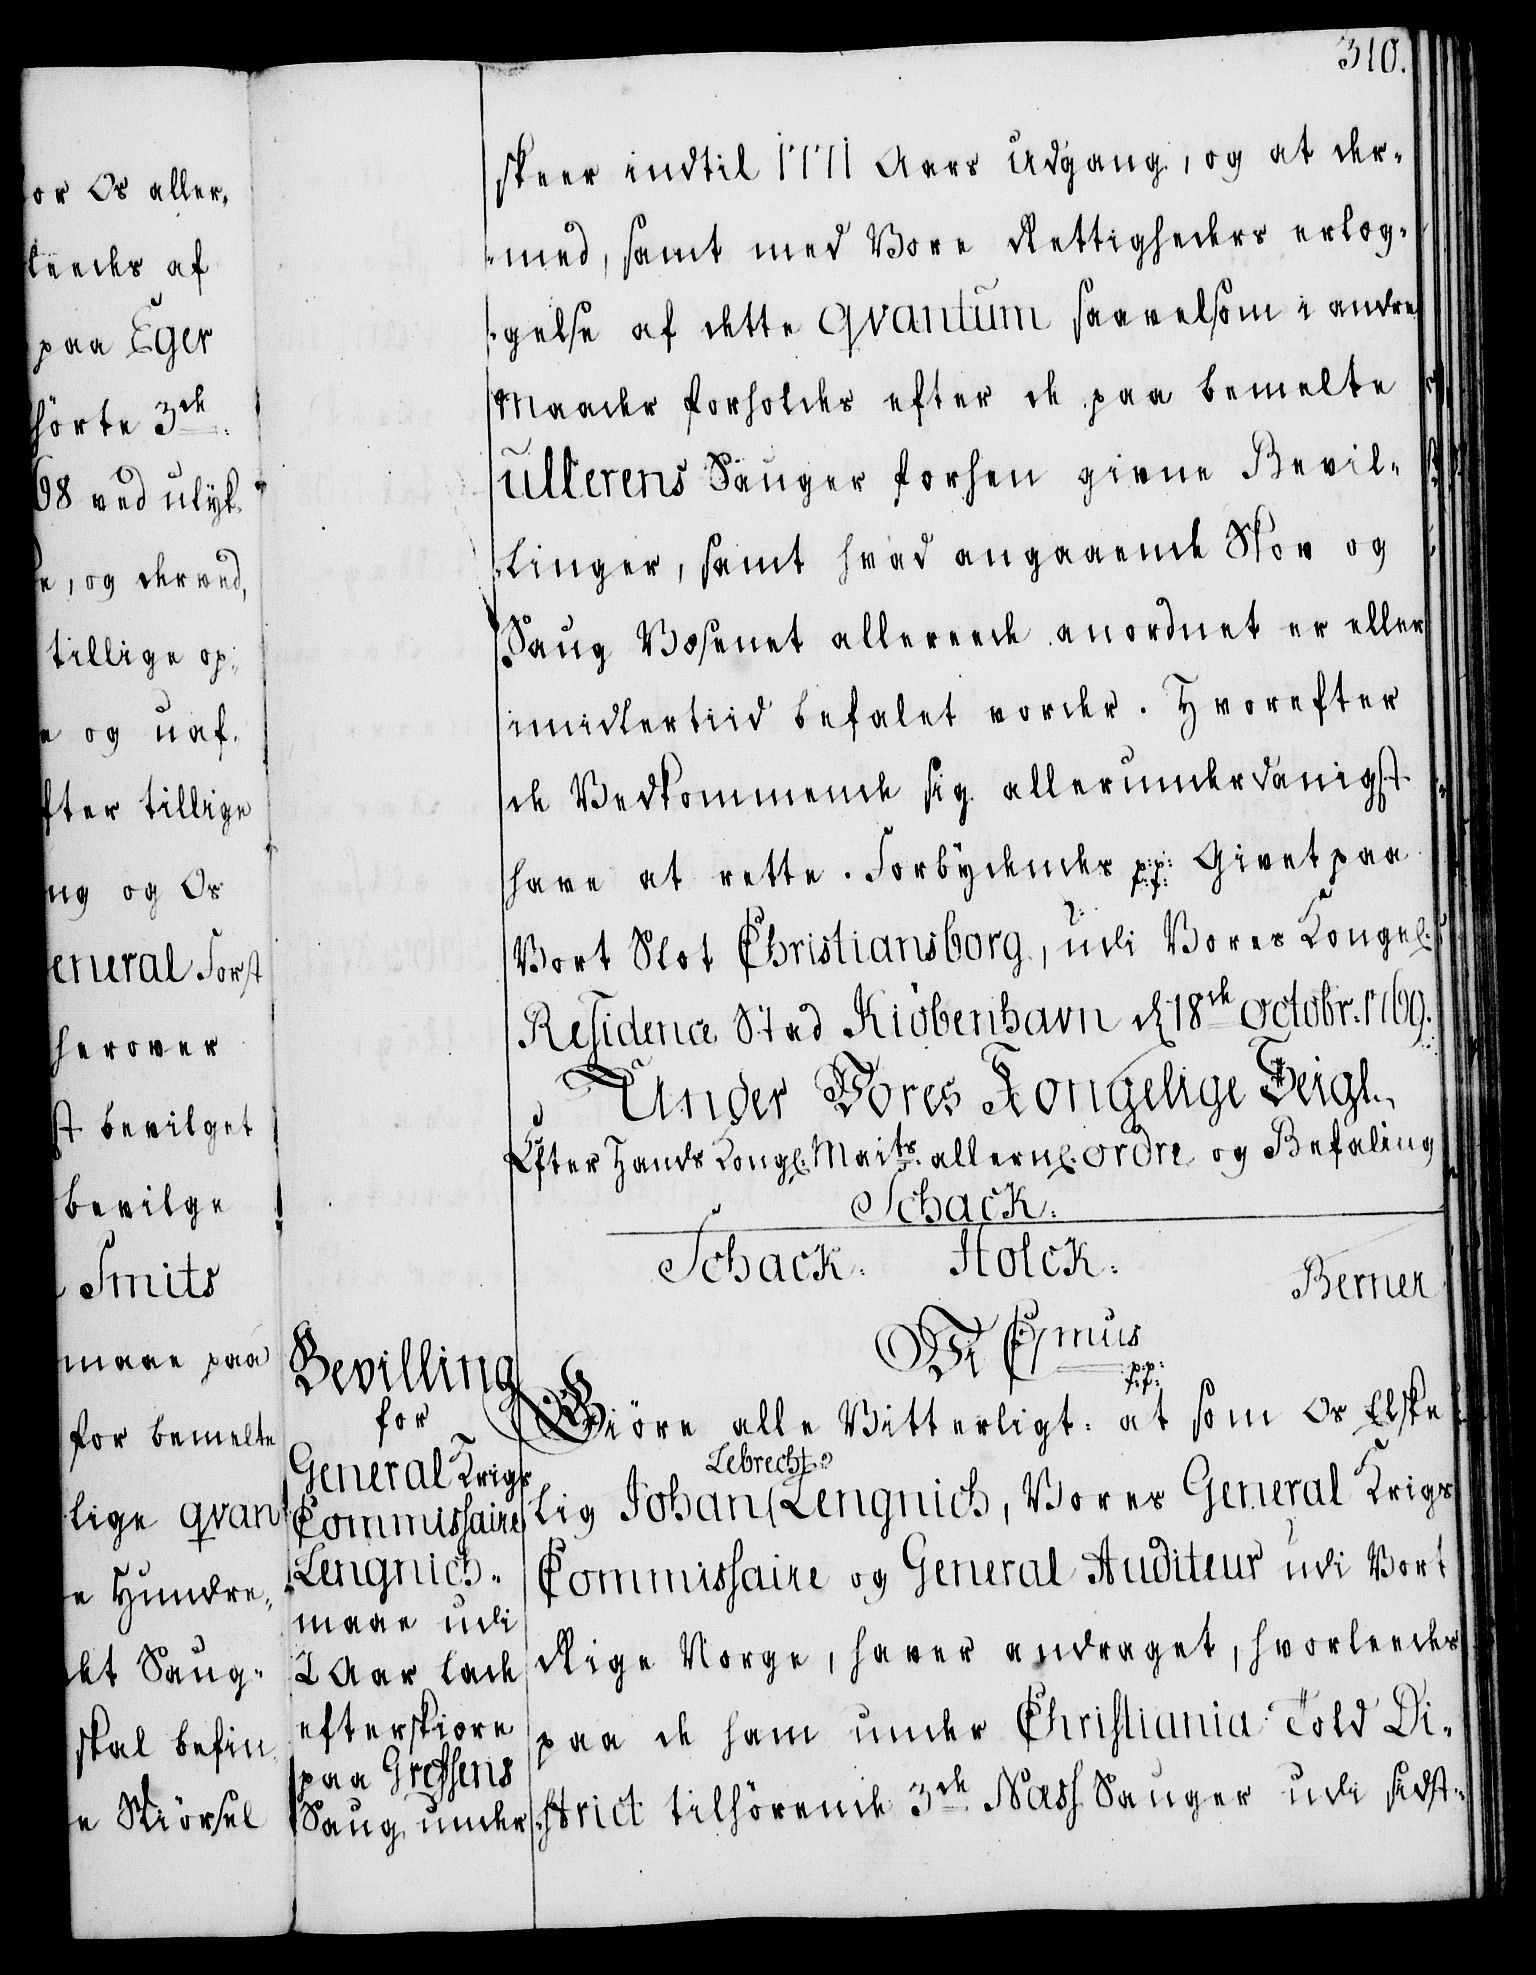 310.
or Os aller,
leedes af
paa Eger
hörte 3de
98 ved ulyk
e, og derved,
tillige op:
e og uaf-
fter tillige
ng og Os
eneral Forst
herover
st bevilget
bevilge
Smits
maae paa
for bemelte
lige qvan
e Hundre,
det Saug-
skal befin
e Skiörsel
skeer indtil 1771 Aars Udgang, og at der-
-med, samt med Vore Rettigheders erlæg-
-gelse af dette qvantum saavelsom i andre
Maader forholdes efter de paa bemelte
Ullerens Sauger forhen givne Bevil-
-linger, samt hvad angaaende Skov og
Saug Væsenet allereede anordnet er eller
imidlertiid befalet vorder. Hvorefter
de Vedkommende sig allerunderdanigst
have at rette. Forbydendes p:p: Givet paa
f:f:
Vort Slot Christiansborg, udi Vores Kongel:
Residence Stad Kiöbenhavn d 18de Octobr: 1769.
Under Vores Kongelige Seigl.
Efter Hands Kongl: Maits. allern: ordre og Befaling
Schack.
Schack. Holck.
Berner
Vi C7mus
p:p:
f:f:
Bevilling
for
General Krigs
Commissaire
Lengnich.
maae udi
2 Aar lade
efterskiære
paa Gressens
Saug under
Giöre alle Vitterligt: at som Os Elske
Lebrecht
lig Johan Lengnich, Vores General Krigs
Commissaire og General Auditeur udi Vort
Rige Norge, haver andraget, hvorleedes
paa de ham under Christiania Told Di-
-strict tilhörende 3de Nass Sauger udi sidst-